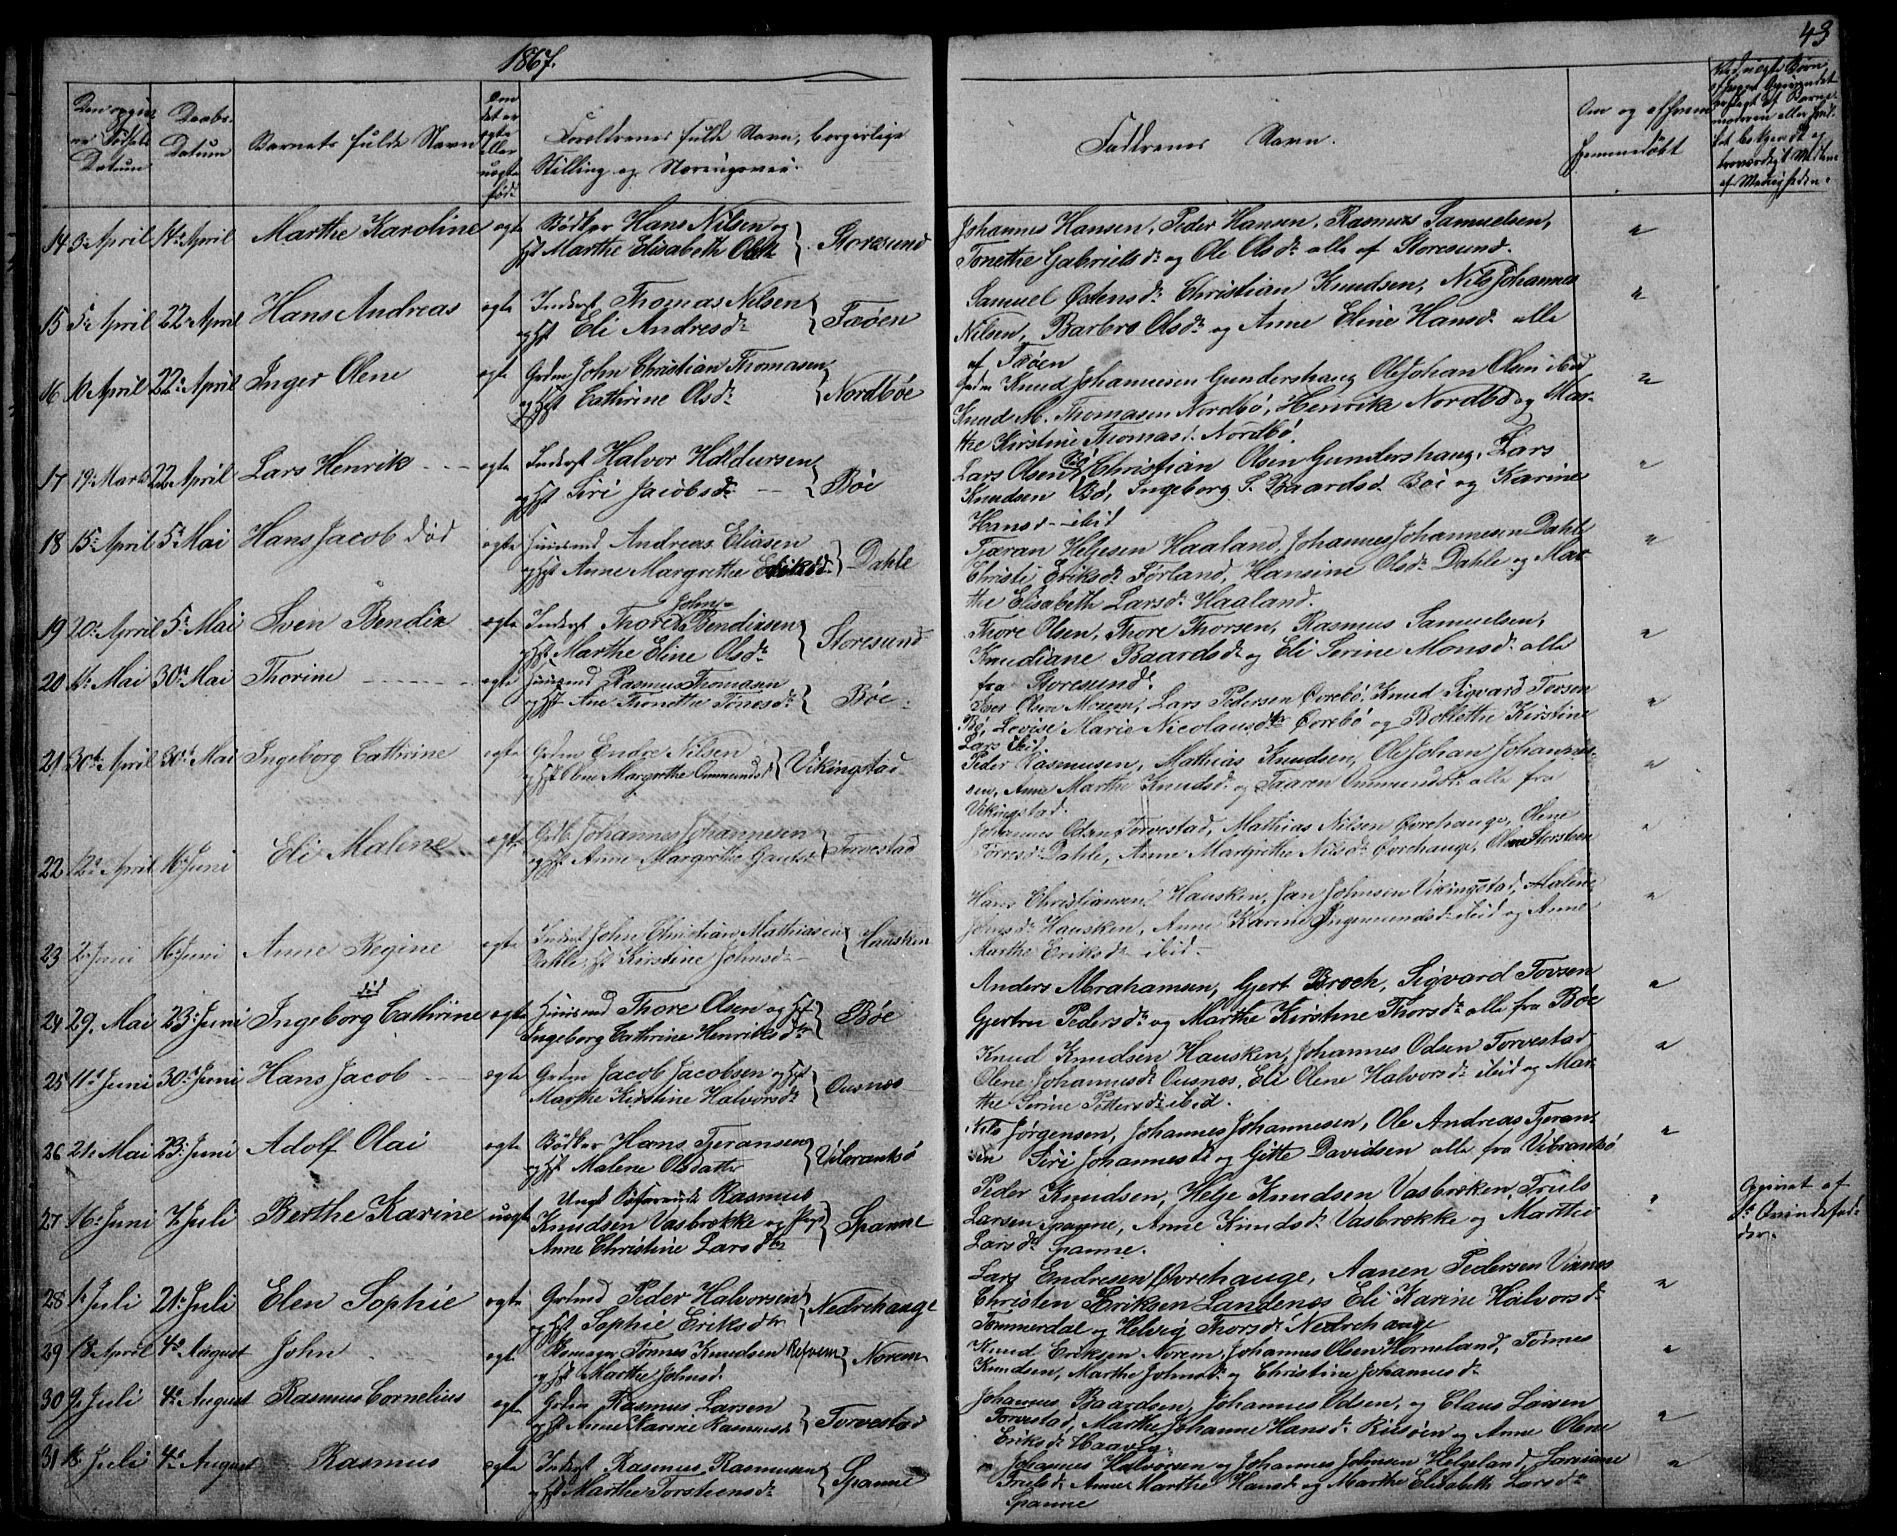 1867.
43
Daabs Datum
Barnets fulde Navn
Om det er ægte eller uægte født
Foreldrenes fulde Navn, borgerlige
Stilling og Næringsvei.
Faddrenes Navn.
14 April 14 April Marthe Karoline ægte Bødker Hans Nilsen og
Marthe Elisabeth Storesund
Johannes Hansen, Peder Hansen, Rasmus Samuelsen,
Tonethe Gabrielsd: og Ole Olsd: alle af Storesund.
15 5 April 22 April Hans Andreas ægte Thomas Nilsen
og Hst Eli Andresd: Føøen
Samuel Østensd: Christian Knudsen, Nils Johannes
Nilsen, Barbro Olsd: og Anne Eline Hansd: alle
af Føøen
16 April 22 April Inger Olene ægte John Christian Thomasen
og Hst Cathrine Olsd: Nordbøe
Knud Johannesen Gundershaug Ole Johan Olsen ibid
Knud M. Thomasen Nordbø, Henrike Nordbø og Mar-
the Kirstine Thomasd: Nordbø.
17 19 Marts 22 April Lars Henrik ægte Halvor Haldursen
og Hst Siri Jacobsd: Bøe
Lars Olsen Bø Christian Olsen Gundershaug, Lars
Knudsen Bø, Ingeborg S. Baardsd. Bøe og Karine
Hansd ibid
18 15 April 5 Mai Hans Jacob død ægte Huusmd Andreas Eliasen
og Hst Anne Margrethe Eriksd: Dahle
Tjæran Helgesen Haaland, Johannes Johannesen Dahle
Christi Eriksd: Førland, Hansine Olsd: Dahle og Mar
the Elisabeth Larsd: Haaland.
19 20 April 5 Mai Sven Bendix ægte Thore John Bendixsen
og Hst Marthe Eline Olsd: Storesund
Thore Olsen, Thore Thorsen, Rasmus Samuelsen,
Knudiane Baardsd: og Eli Serine Monsd: alle
fra Storesund.
20 Mai 30 Mai Thorine ægte Huusmd Rasmus Thomasen
og Hst Ane Thonette Tonesd: Bøe
Iver Olsen Lars Pedersen Øvrebø, Knud Sigvard Tovsen
Bø, Lovise Marie Nicolausd: Øvrebø og Bollette Kirstine
Lars ibid.
21 30 April 30 Mai Ingeborg Cathrine ægte Endre Nilsen
og Hst Margrethe Ommundsd Vikingstad
Peder Rasmusen, Mathias Knudsen, Ole Johan Johannes-
sen, Anne Marthe Knudsd: og Taaren Ommundsd: alle fra
Vikingstad.
22 12 April Juni Eli Malene ægte Johannes Johannesen
og Hst Anne Margrethe Torvestad
Johannes Odsen Torvestad, Mathias Nilsen Øvrehauge, Olene
Torresd: Dahle, Anne Margrethe Nilsd: Øvrehauge, Olene Storsteen
23 2 Juni Juni Anne Regine ægte John Christian Mathiasen
Dahle, Hst Kirstine Johnsd: Hausken
Hans Christiansen Hausken, Jan Johnsen Vikingstad, Malene
Johnsd: Hausken, Anne Karine Ingemundsd: ibid og Anne
Marthe Eriksd: ibid.
død
24 29. Mai 23 Juni Ingeborg Cathrine ægte Huusmd Thore Olsen og Hst
Ingeborg Cathrine Henriksd: Bøe
Anders Abrahamsen, Gjert Broch, Sigvard Tovsen
Gjertru Pedersd: og Marthe Kirstine Thorsd: alle fra Bøe
25 11 Juni 30 Juni Hans Jacob ægte Jacob Jacobsen og Hst
Marthe Kirstine Halvorsd: Ousnæs
Knud Knudsen Hausken, Johannes Odsen Torvestad
Olene Johannesd: Ousnæs, Eli Olene Halvorsd: ibid og Mar
the Serine Pettersd: ibid.
26 21 Mai 23 Juni Adolf Olai ægte Bødker Hans Tjeransen
og Hst Malene Olsdatter Vibrandsø
Nils Jørgensen, Johannes Johannesen, Ole Andreas Tjeran-
sen Siri Johannesd: og Gitte Davidsen alle fra Vibrandsø
27 16 Juni 7 Juli Berthe Karine uægte Ungk Rasmus
Knudsen Vasbrække og Pige
Anne Christine Larsd: Spanne
Peder Knudsen, Helje Knudsen Vasbrækken, Truls
Larsen Spanne, Anne Knudsd: Vasbrække og Marthe
Larsd: Spanne.
28 1 Juli 21 Juli Elen Sophie ægte Peder Halvorsen
og Hst Sophie Eriksd: Nedrehauge
Lars Endresen Øvrehauge, Aanen Pedersen Vinnes
Christen Eriksen Landenæs Eli Karine Halvorsd:
Tommerdal og Helvig Thorsd: Nedrehauge
29 18 April 4 August John ægte Tønnes Knudsen
og Hst Marthe Johnsd. Norem
Knud Eriksen Norem, Johannes Olsen Horneland, Tønnes
Knudsen, Marthe Johnsd: og Christine Johannesd:
30 9 Juli 4 August Rasmus Cornelius ægte Rasmus Larsen
og Hst Anne Karine Rasmusd: Torvestad
Johannes Baardsen, Johannes Odsen, og Claus Larsen
Torvestad, Marthe Johanne Hansd: og Anne Olene
Eriksd: Haavig
31 Juli 4 August Rasmus ægte Rasmus Rasmusen
og Hst Marthe Torsteensd: Spanne
Johannes Halvorsen og Johannes Johnsen Helgeland,
Trulsd: Anne Marthe Hansd: og Marthe Elisabeth Larsd:
Spanne